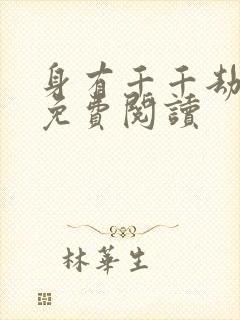 身有千千劫
免費閱讀
林華生